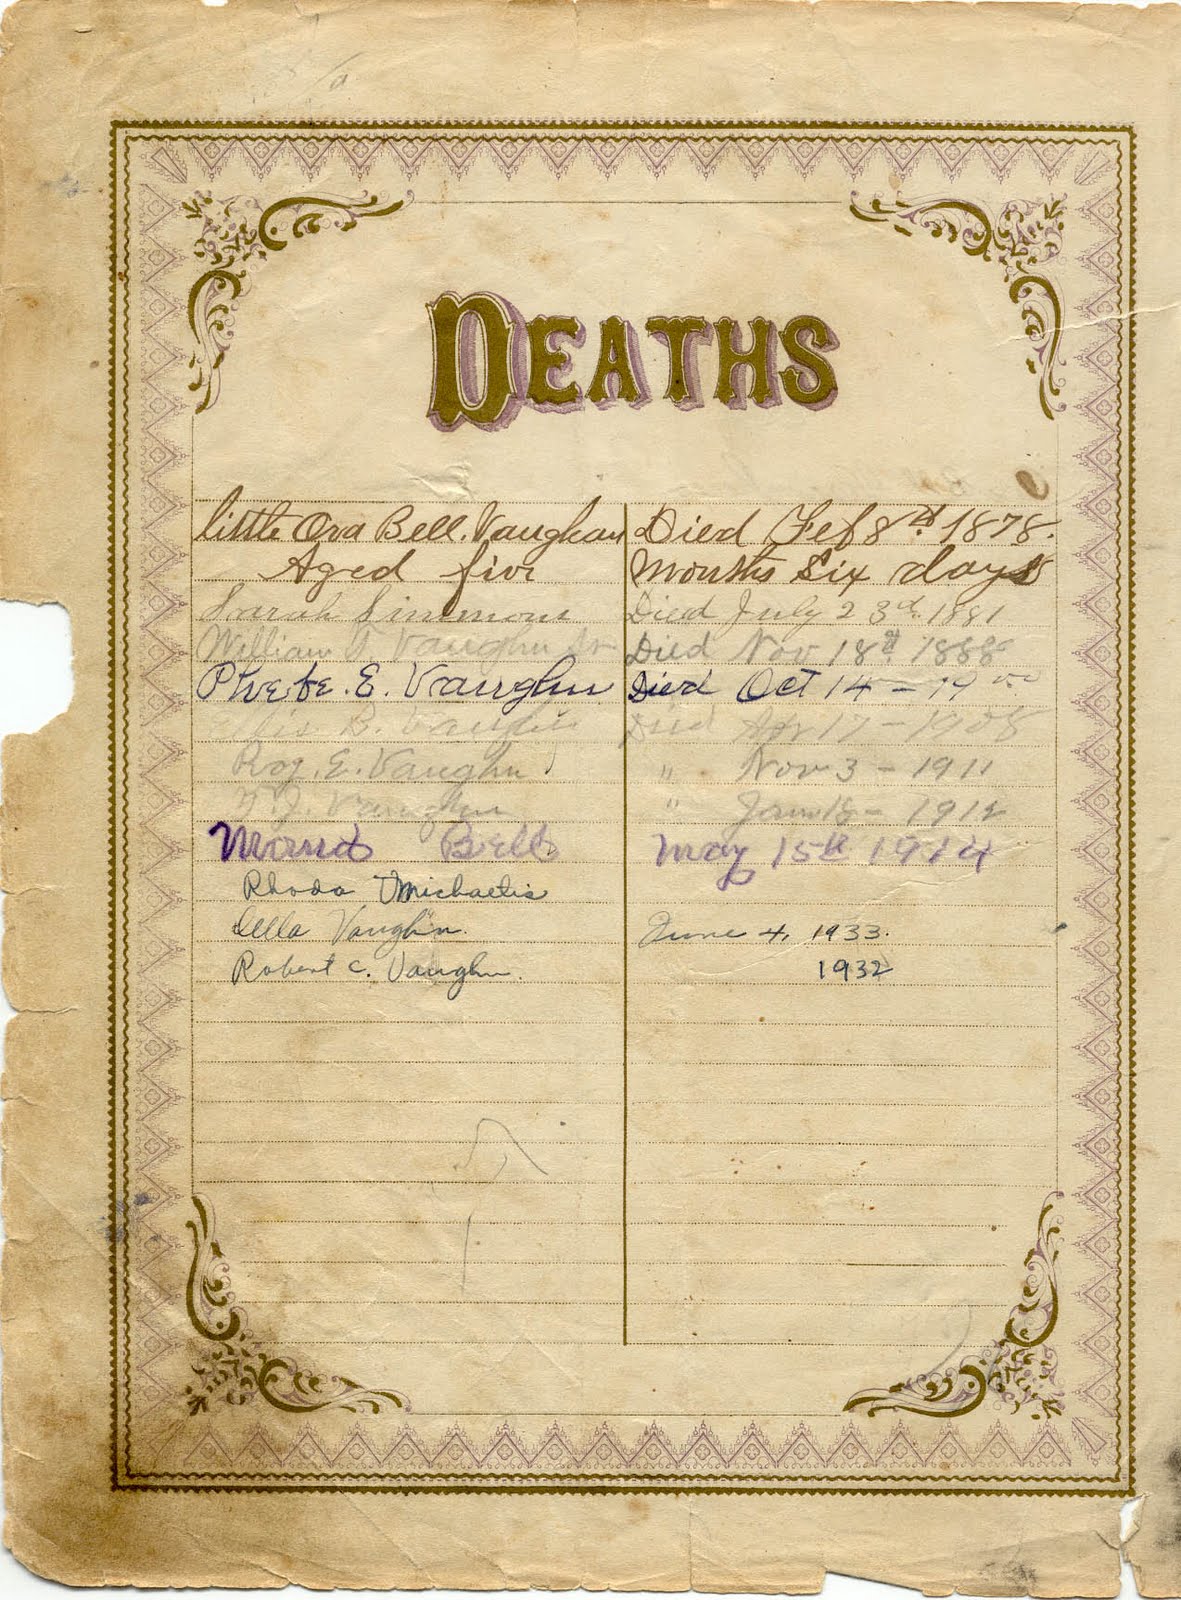 DEATHS
little Ova Bell. Vaughan Died Feb 8th 1878.
Aged five months six days
Sarah Simmons Died July 23rd 1881
William T. Vaughn Sr Died Nov 18th 1888
Phoebe. E. Vaughn Died Oct 14 - 1900
B. Vaughn Died Apr 17 - 1908
Roy. E. Vaughn " Nov 3 - 1911
Vaughn " Jan 18 - 1912
Maud Bell May 15th 1914
Rhoda Michaelis
Della Vaughn. June 4, 1933.
Robert C. Vaughn. 1932